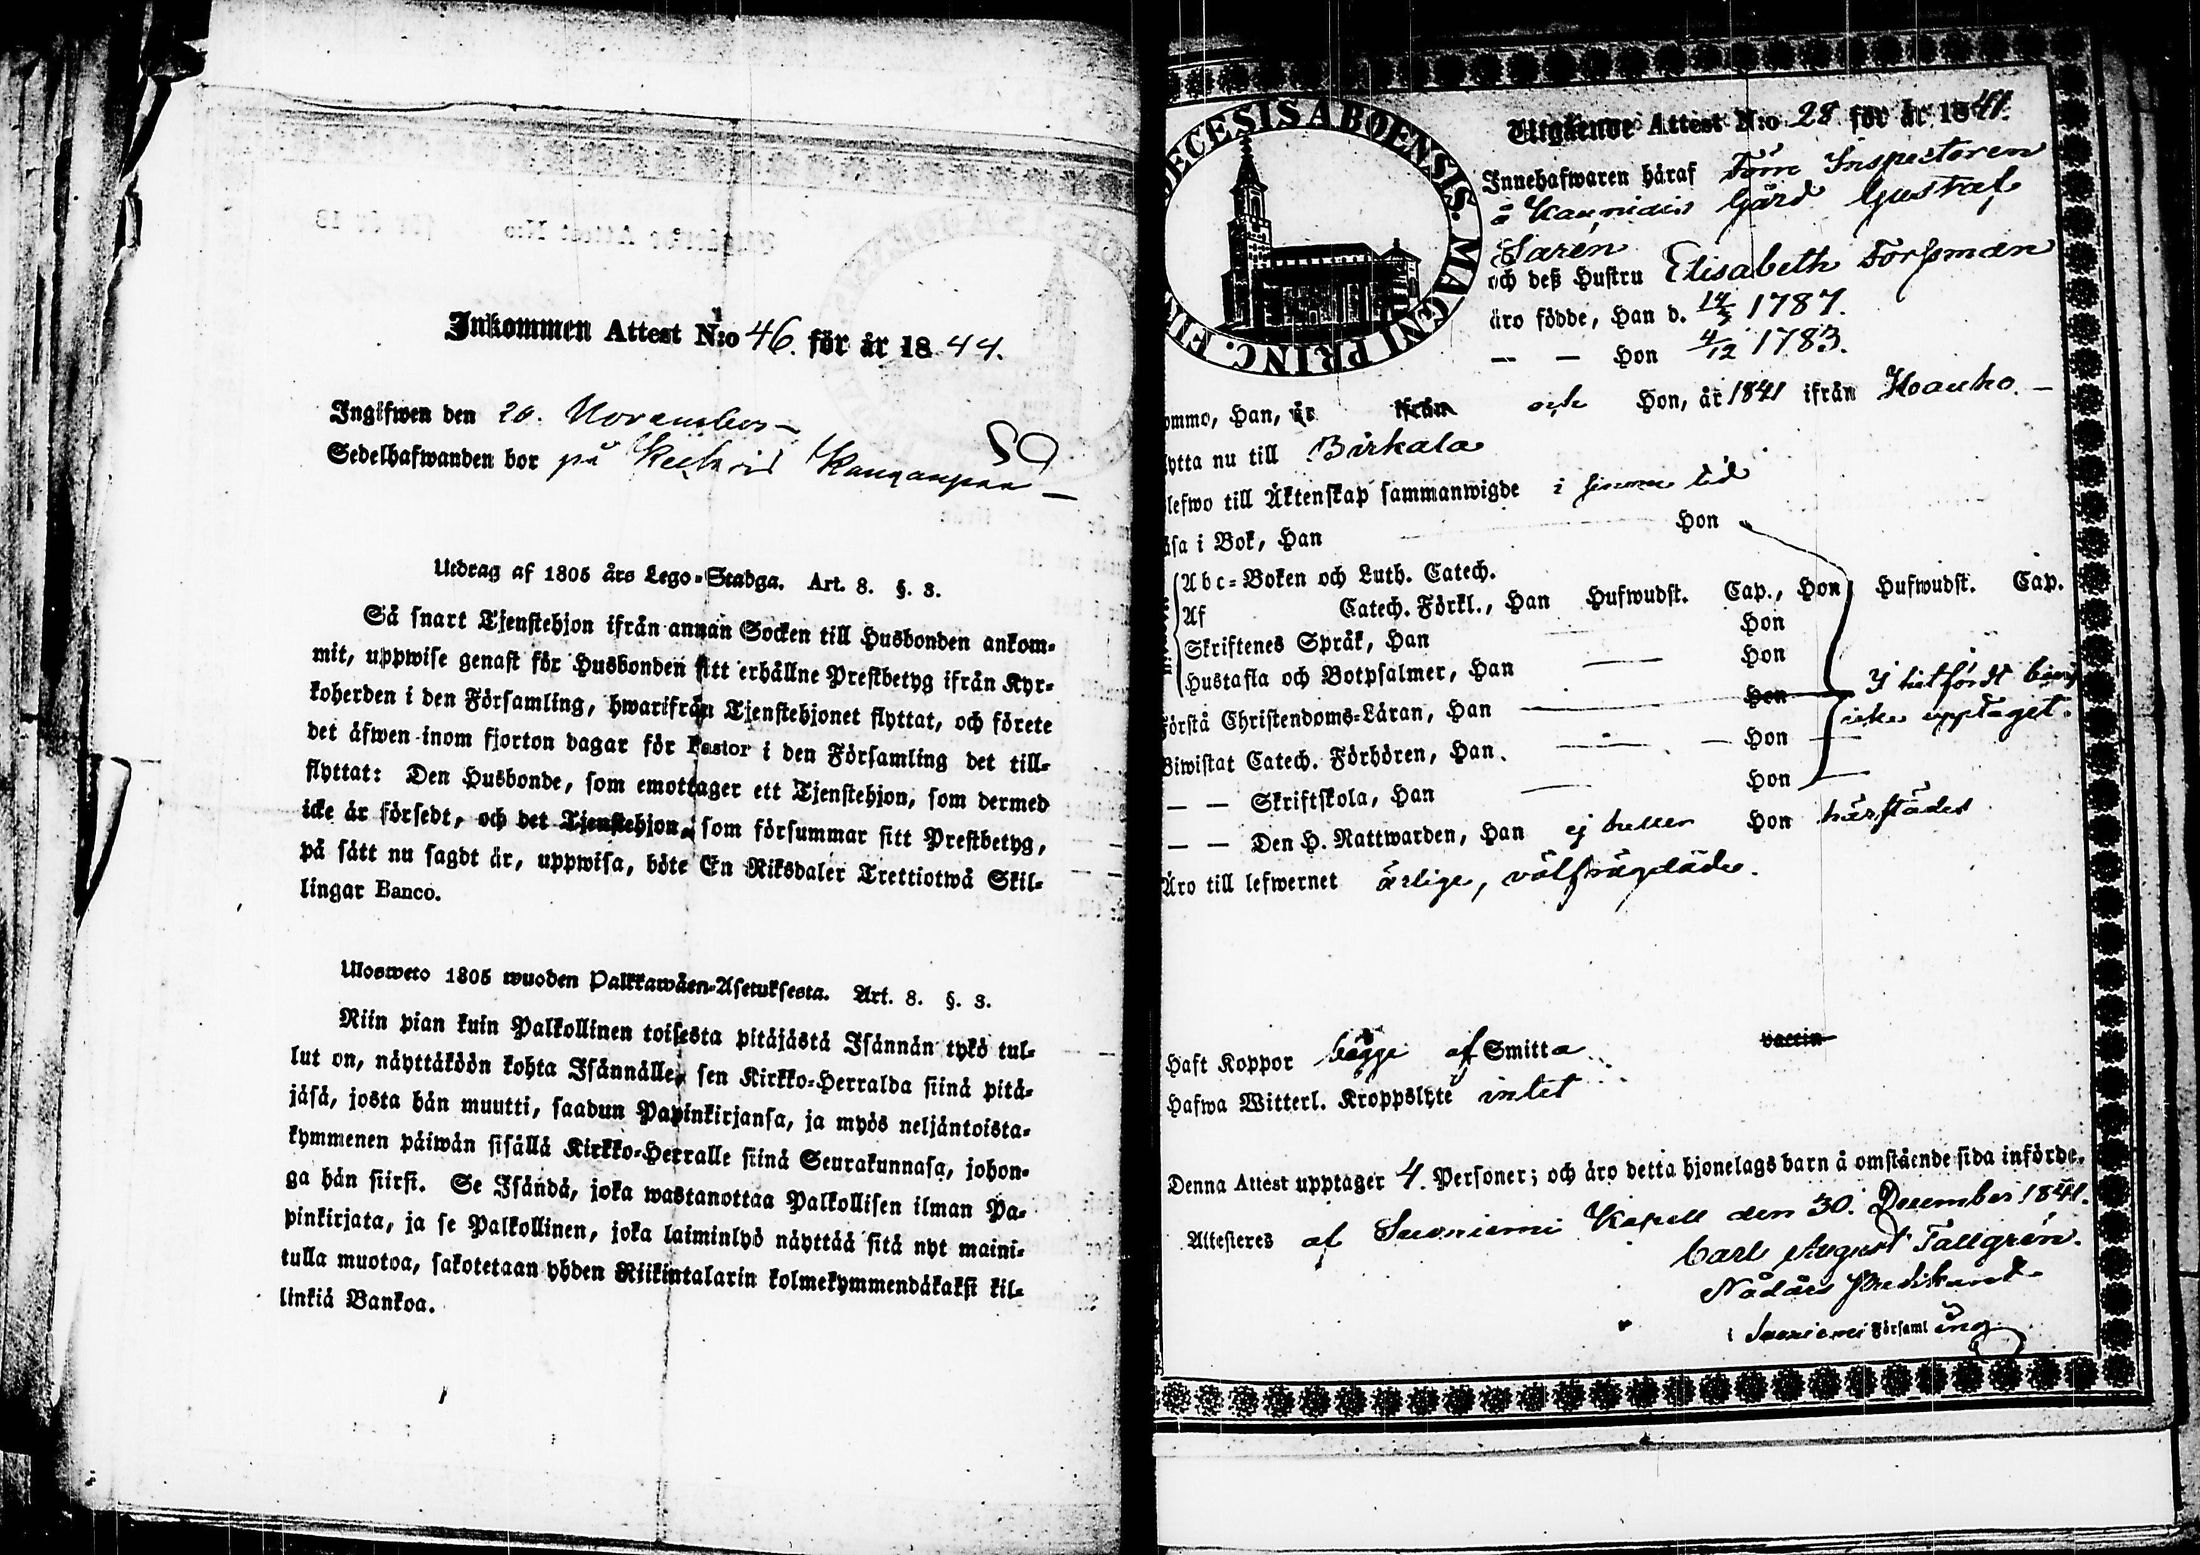 Inkommen Attest N:o 46. för år 1844.
Ingifwen den 20. November
Sedelhafwanden bor på
59
Utdrag af 1805 års Lego-Stadga. Art. 8. §. 3.
Så snart Tjenstehjon ifrån annan Socken till Husbonden ankom-
mit, uppwise genast för Husbonden sitt erhållne Prestbetyg ifrån Kyr-
koherden i den Församling, hwarifrån Tjenstehjonet flyttat, och förete
det äfwen inom fjorton dagar för Pastor i den Församling det till-
flyttat: Den Husbonde, som emottager ett Tjenstehjon, som dermed
icke är försedt, och det Tjenstehjon, som försummar sitt Prestbetyg,
på sätt nu sagdt är, uppwisa, böte En Riksdaler Trettiotwå Skil-
lingar Banco.
Ulosweto 1805 wuoden Palkkawäen-Asetuksesta. Art. 8. §. 3.
Niin pian kuin Palkollinen toisesta pitäjästä Isännän tykö tul-
lut on, näyttäköön kohta Isännälle, sen Kirkko-Herralda siinä pitä-
jäsä, josta hän muutti, saadun Papinkirjansa, ja myös neljäntoista-
kymmenen päiwän sisällä Kirkko-Herralle siinä Seurakunnasa, johon-
ga hän siirsi. Se Isändä, joka wastanottaa Palkollisen ilman Pa-
pinkirjata, ja se Palkollinen, joka laiminlyö näyttää sitä nyt maini-
tulla muotoa, sakotetaan yhden Riikintalarin kolmekymmendäkaksi kil-
linkiä Bankoa.
DECESIS ABOENSIS. MAGNI PRINC. FIN
Utgående Attest N:o 28 för år 1841.
Innehafwaren häraf Förre Inspectoren
å Gård Gustaf
Saren
och deß Hustru Elisabeth Forssman
äro födde, Han d. 1787.
— — Hon 4/12 1783.
ommo, Han, år ifrån och Hon, år 1841 ifrån Koauko.
ytta nu till Birkala
lefwo till Äktenskap sammanwigde i sinom tid
äsa i Bok, Han Hon
Abc-Boken och Luth. Catech.
Af Catech. Förkl., Han Hufwudst. Cap., Hon Hufwudst. Cap.
Skriftenes Språk, Han Hon
Hustafla och Botpsalmer, Han Hon
Förstå Christendoms-Läran, Han Hon I hitfördt betyg
icke upptaget.
Biwistat Catech. Förhören, Han Hon
— — Skriftskola, Han Hon
— — Den H. Nattwarden, Han ej heller Hon härstädes
Äro till lefwernet ärlige, välfrägdade.
Haft Koppor bägge af Smitta vaccin
Hafwa Witterl. Kroppslyte intet
Denna Attest upptager 4. Personer; och äro detta hjonelags barn å omstående sida införde.
Attesteres af Suoniemi Kapell den 30. December 1841.
Carl August Tallgrén.
Nådårs Predikant
i Suoniemi Församling